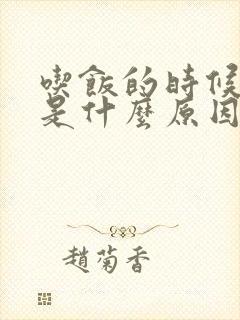 喫飯的時候
是什麼原因
趙菊香